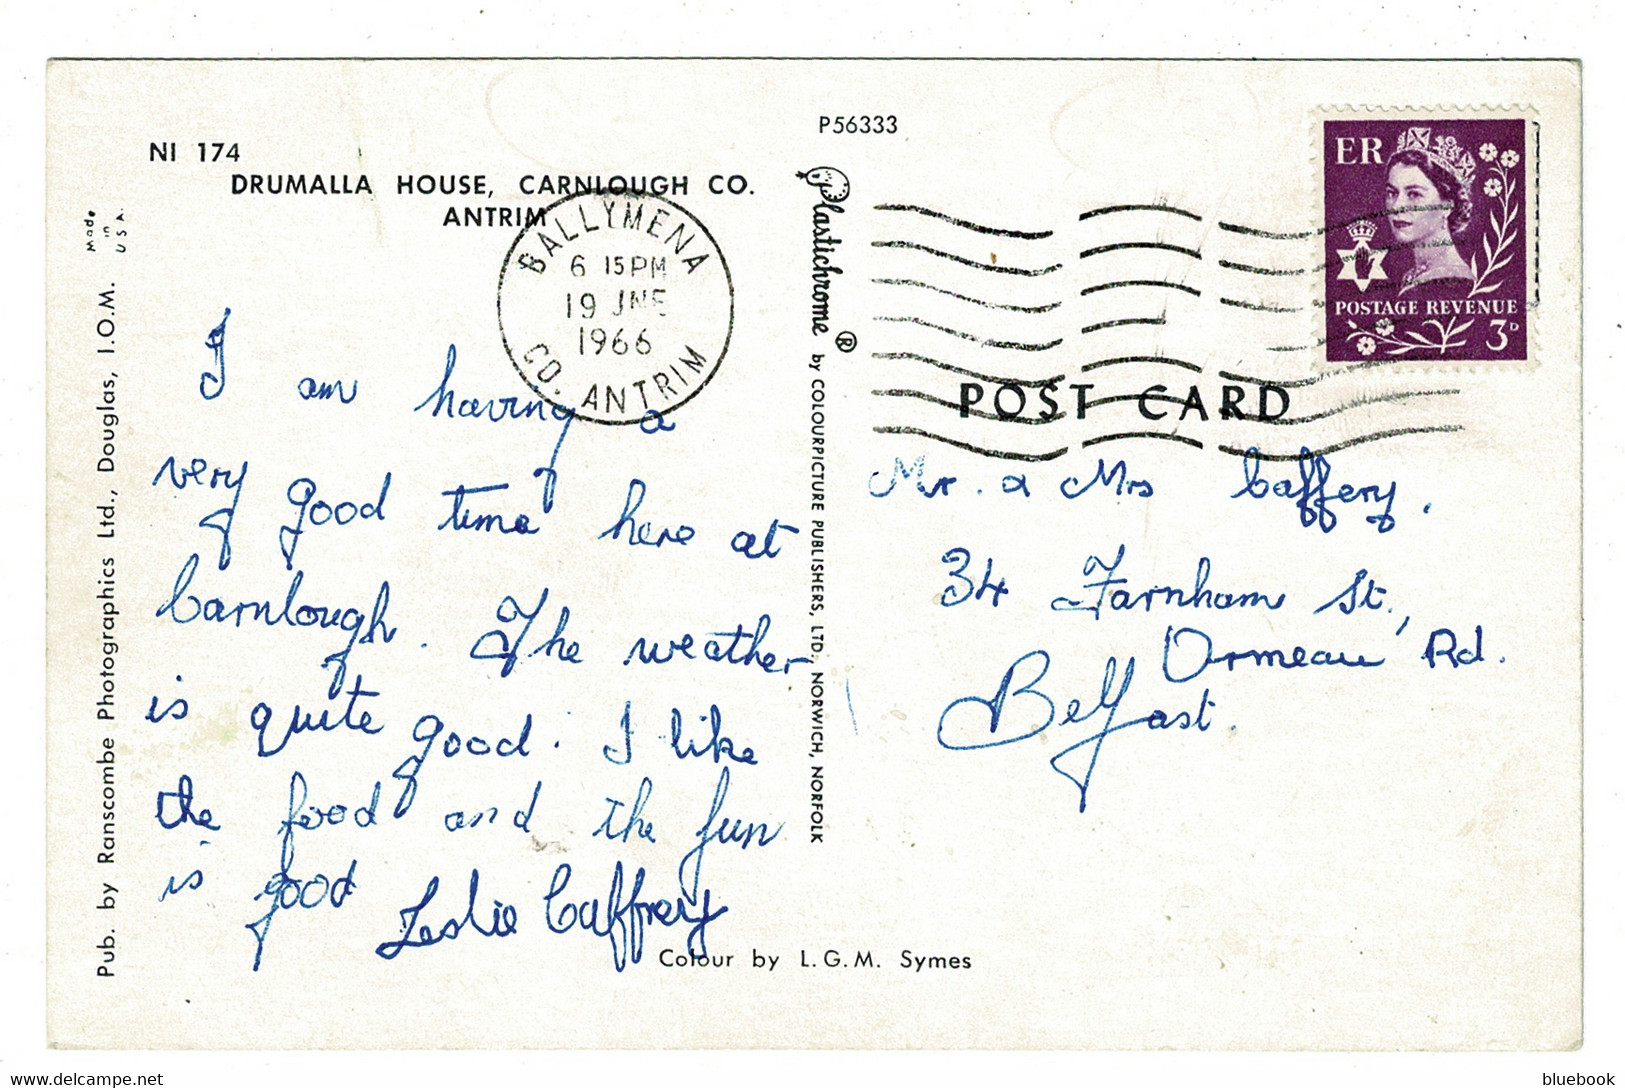 NI 174
DRUMALLA HOUSE, CARNLOUGH CO.
ANTRIM
Made
in
U S A.
Pub. by Ranscombe Photographics Ltd., Douglas, I.O.M.
BALLYMENA
6 15 PM
19 JNE
1966
CO. ANTRIM
I am having a
very good time here at
Carnlough. The weather
is quite good. I like
the food and the fun
is good Leslie Caffrey
Colour by L.G.M. Symes
P56333
Plastichrome ® by COLOURPICTURE PUBLISHERS, LTD., NORWICH, NORFOLK
ER
POSTAGE REVENUE
3D
POST CARD
Mr. & Mrs Caffery.
34 Farnham St.,
Ormeau Rd.
Belfast.
https://www.delcampe.net
bluebook